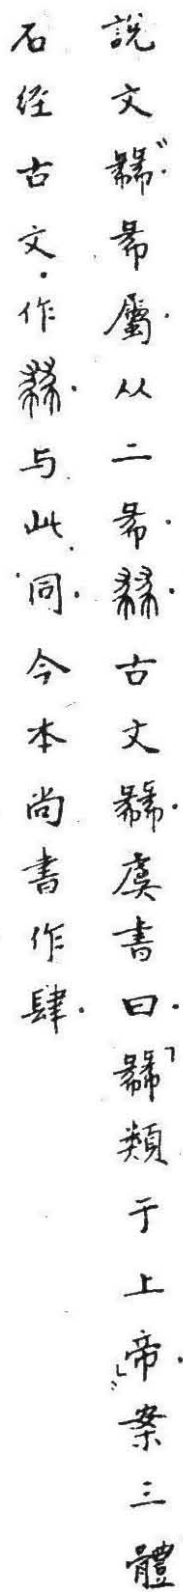 說文「𥿉㣇屬从二㣇𢑲古文𥿉虞書曰「𥿉類于上帝」案三體
石经古文作𢑲与此同今本尚書作肆